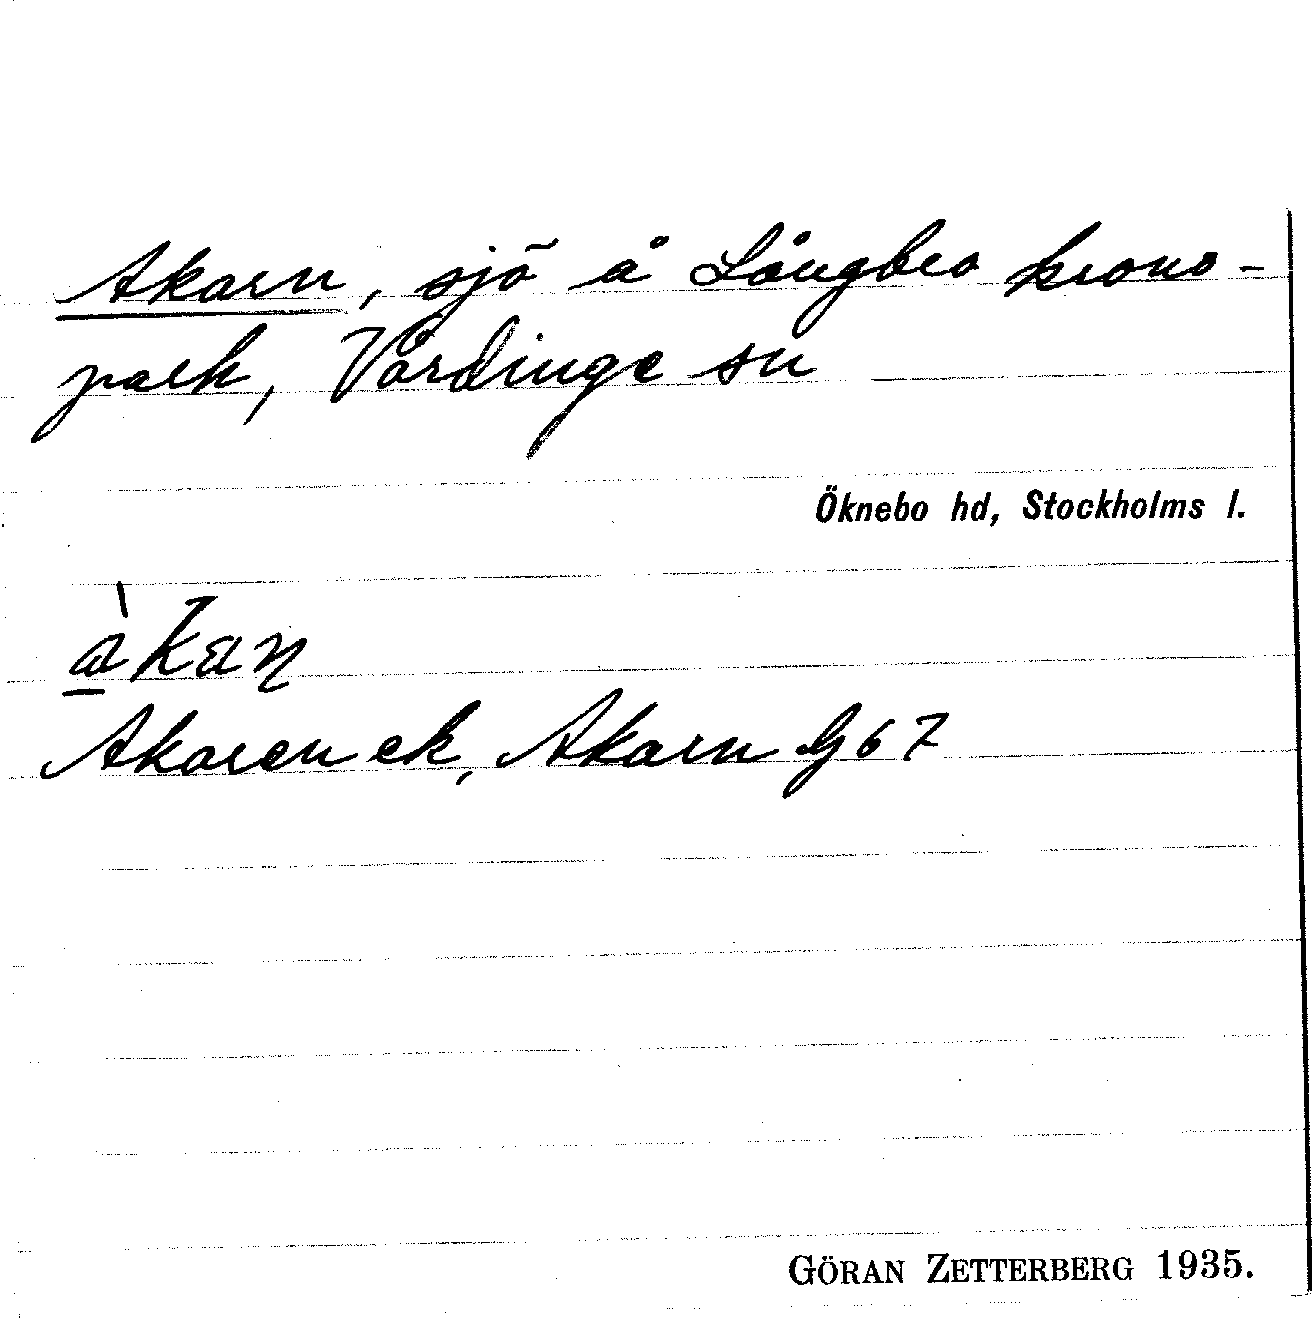 Akarn, sjö å Långbro krono-
park, Vårdinge sn
Öknebo hd, Stockholms l.
àkaɳ
Akaren ek, Akarn G 67
GÖRAN ZETTERBERG 1935.